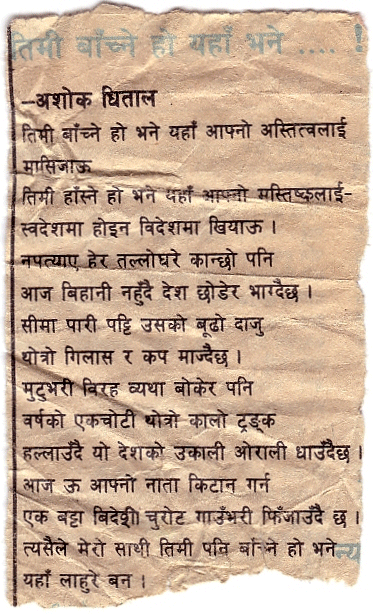 तिमी बाँच्ने हो यहाँ भने .... !
–अशोक धिताल
तिमी बाँच्ने हो भने यहाँ आफ्नो अस्तित्वलाई
मासिजाऊ
तिमी हाँस्ने हो भने यहाँ आफ्नो मस्तिष्कलाई-
स्वदेशमा होइन विदेशमा खियाऊ ।
नपत्याए हेर तल्लोघरे कान्छो पनि
आज बिहानी नहुँदै देश छोडेर भाग्दैछ ।
सीमा पारी पट्टि उसको बूढो दाजु
थोत्रो गिलास र कप माज्दैछ ।
मुटुभरी विरह व्यथा बोकेर पनि
वर्षको एकचोटी थोत्रो कालो ट्रङ्क
हल्लाउँदै यो देशको उकाली ओराली धाउँदैछ ।
आज ऊ आफ्नो नाता किटान गर्न
एक बट्टा बिदेशी चुरोट गाउँभरी फिँजाउँदै छ ।
त्यसैले मेरो साथी तिमी पनि बाँच्ने हो भने
यहाँ लाहुरे बन ।